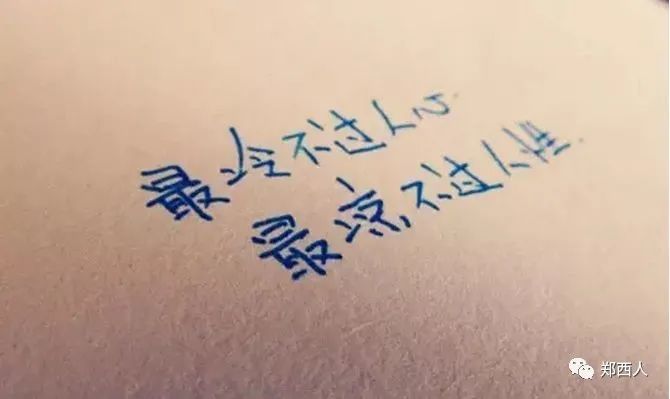 最冷不过人心
最凉不过人性
郑西人